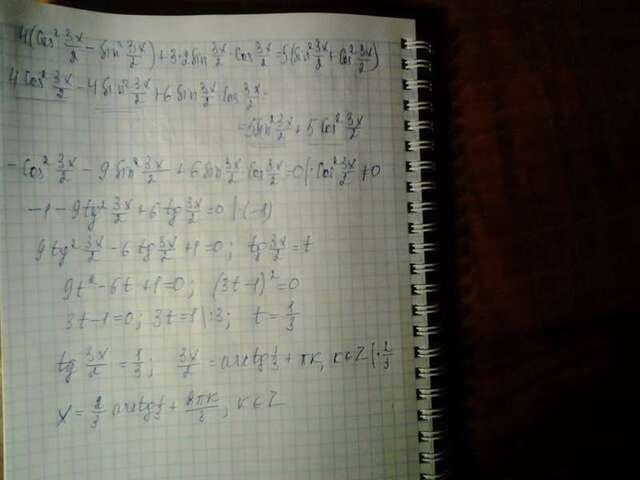 4(cos² 3x/2 - sin² 3x/2) + 3·2sin 3x/2 · cos 3x/2 = 5(sin² 3x/2 + cos² 3x/2)
4cos² 3x/2 - 4sin² 3x/2 + 6sin 3x/2 cos 3x/2 =
= 5sin² 3x/2 + 5cos² 3x/2
-cos² 3x/2 - 9sin² 3x/2 + 6sin 3x/2 cos 3x/2 = 0 | : cos² 3x/2 ≠ 0
-1 - 9tg² 3x/2 + 6tg 3x/2 = 0 | ·(-1)
9tg² 3x/2 - 6tg 3x/2 + 1 = 0; tg 3x/2 = t
9t² - 6t + 1 = 0; (3t-1)² = 0
3t - 1 = 0; 3t = 1 | :3; t = 1/3
tg 3x/2 = 1/3; 3x/2 = arctg 1/3 + πk, k∈Z | · 2/3
x = 2/3 arctg 1/3 + 2πk/3, k∈Z